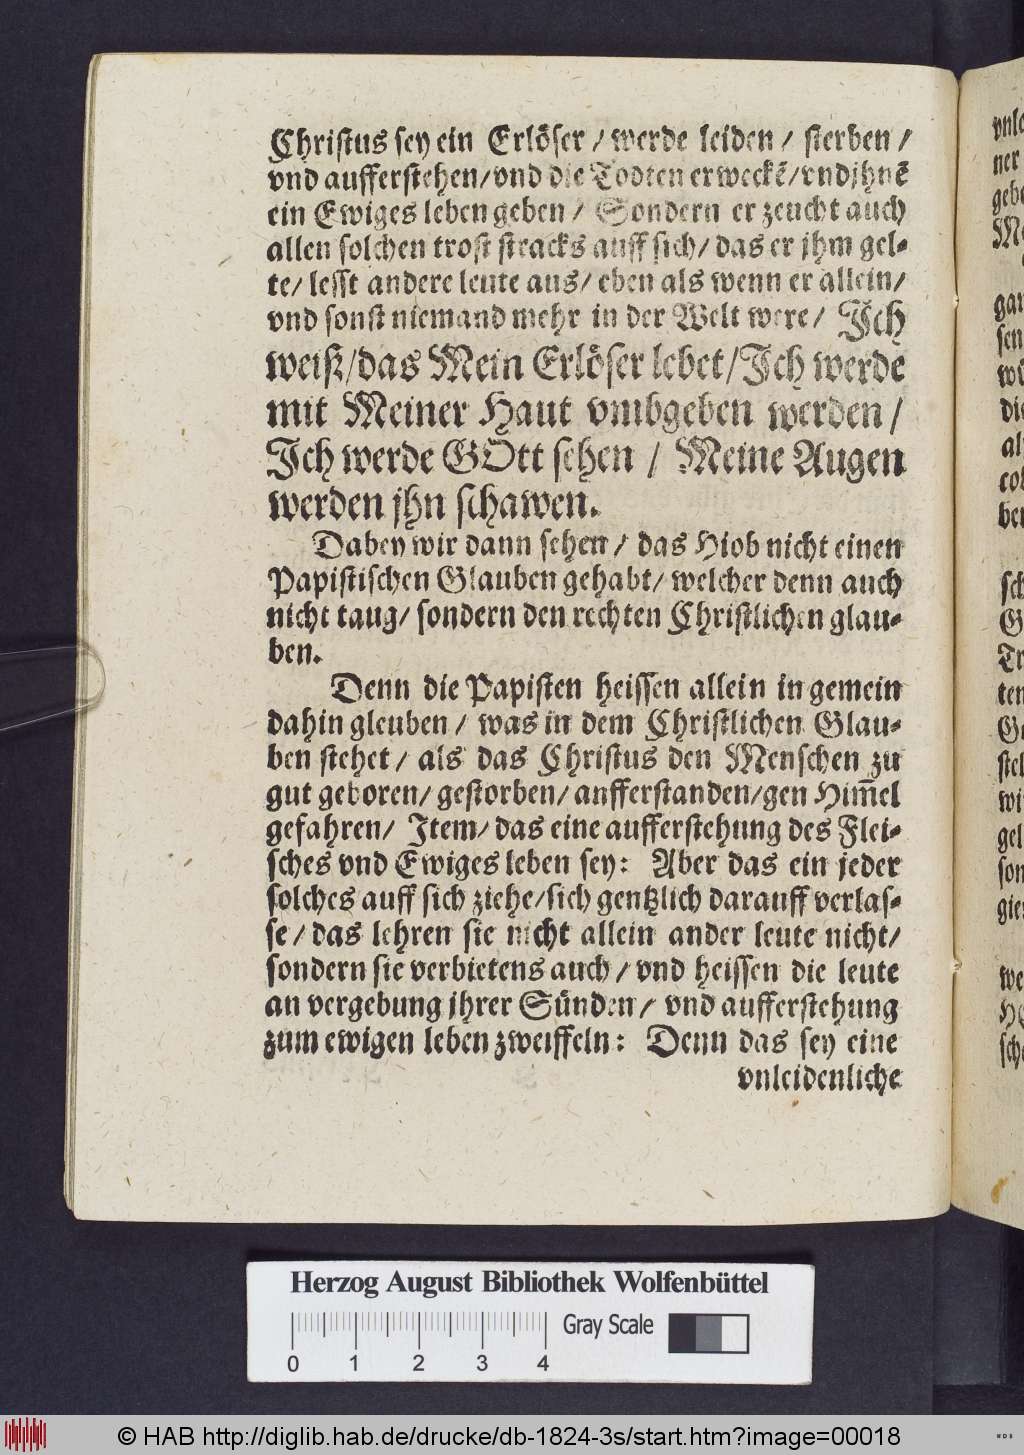 Christus sey ein Erlöser / werde leiden / sterben /
vnd aufferstehen/vnd die Todten erweckẽ/vnd jhnẽ
ein Ewiges leben geben / Sondern er zeucht auch
allen solchen trost stracks auff sich/ das er jhm gel-
te/ lesst andere leute aus/ eben als wenn er allein/
vnd sonst niemand mehr in der Welt were/ Ich
weiß/das Mein Erlöser lebet/Ich werde
mit Meiner Haut vmbgeben werden/
Ich werde GOtt sehen / Meine Augen
werden jhn schawen.
Dabey wir dann sehen/ das Hiob nicht einen
Papistischen Glauben gehabt/ welcher denn auch
nicht taug/ sondern den rechten Christlichen glau-
ben.
Denn die Papisten heissen allein in gemein
dahin gleuben/ was in dem Christlichen Glau-
ben stehet/ als das Christus den Menschen zu
gut geboren/ gestorben/ anfferstanden/gen Him̃el
gefahren/ Item/ das eine aufferstehung des Flei-
sches vnd Ewiges leben sey: Aber das ein jeder
solches auff sich ziehe/sich gentzlich darauff verlas-
se/ das lehren sie nicht allein ander leute nicht/
sondern sie verbietens auch/ vnd heissen die leute
an vergebung jhrer Sünden/ vnd aufferstehung
zum ewigen leben zweiffeln: Denn das sey eine
vnleidenliche
Herzog August Bibliothek Wolfenbüttel
Gray Scale
0 1 2 3 4
© HAB http://diglib.hab.de/drucke/db-1824-3s/start.htm?image=00018